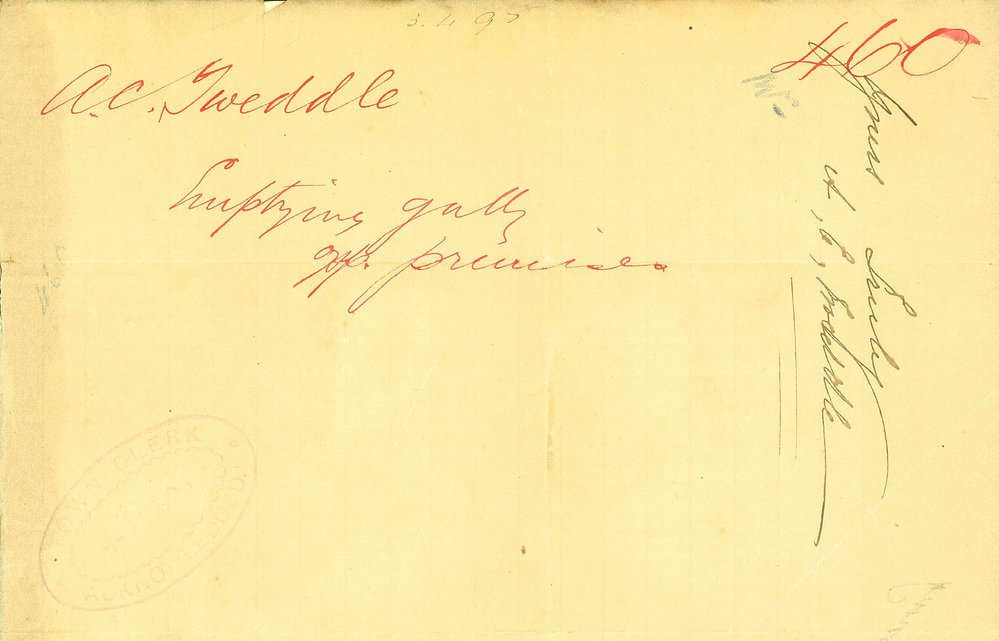 3.4.97
460
A.C. Tweddle
Emptying gully
opp. premises
Yours Truly
A, C, Tweddle
TOWN CLERK
ACKNOWLEDGED.